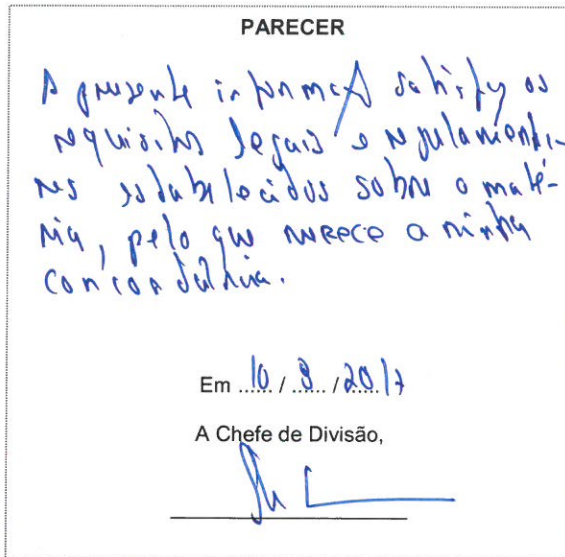 PARECER
A presente informação satisfaz os
requisitos legais e regulamenta-
res estabelecidos sobre a maté-
ria, pelo que merece a minha
concordância.
Em 10 / 8 / 2017
A Chefe de Divisão,